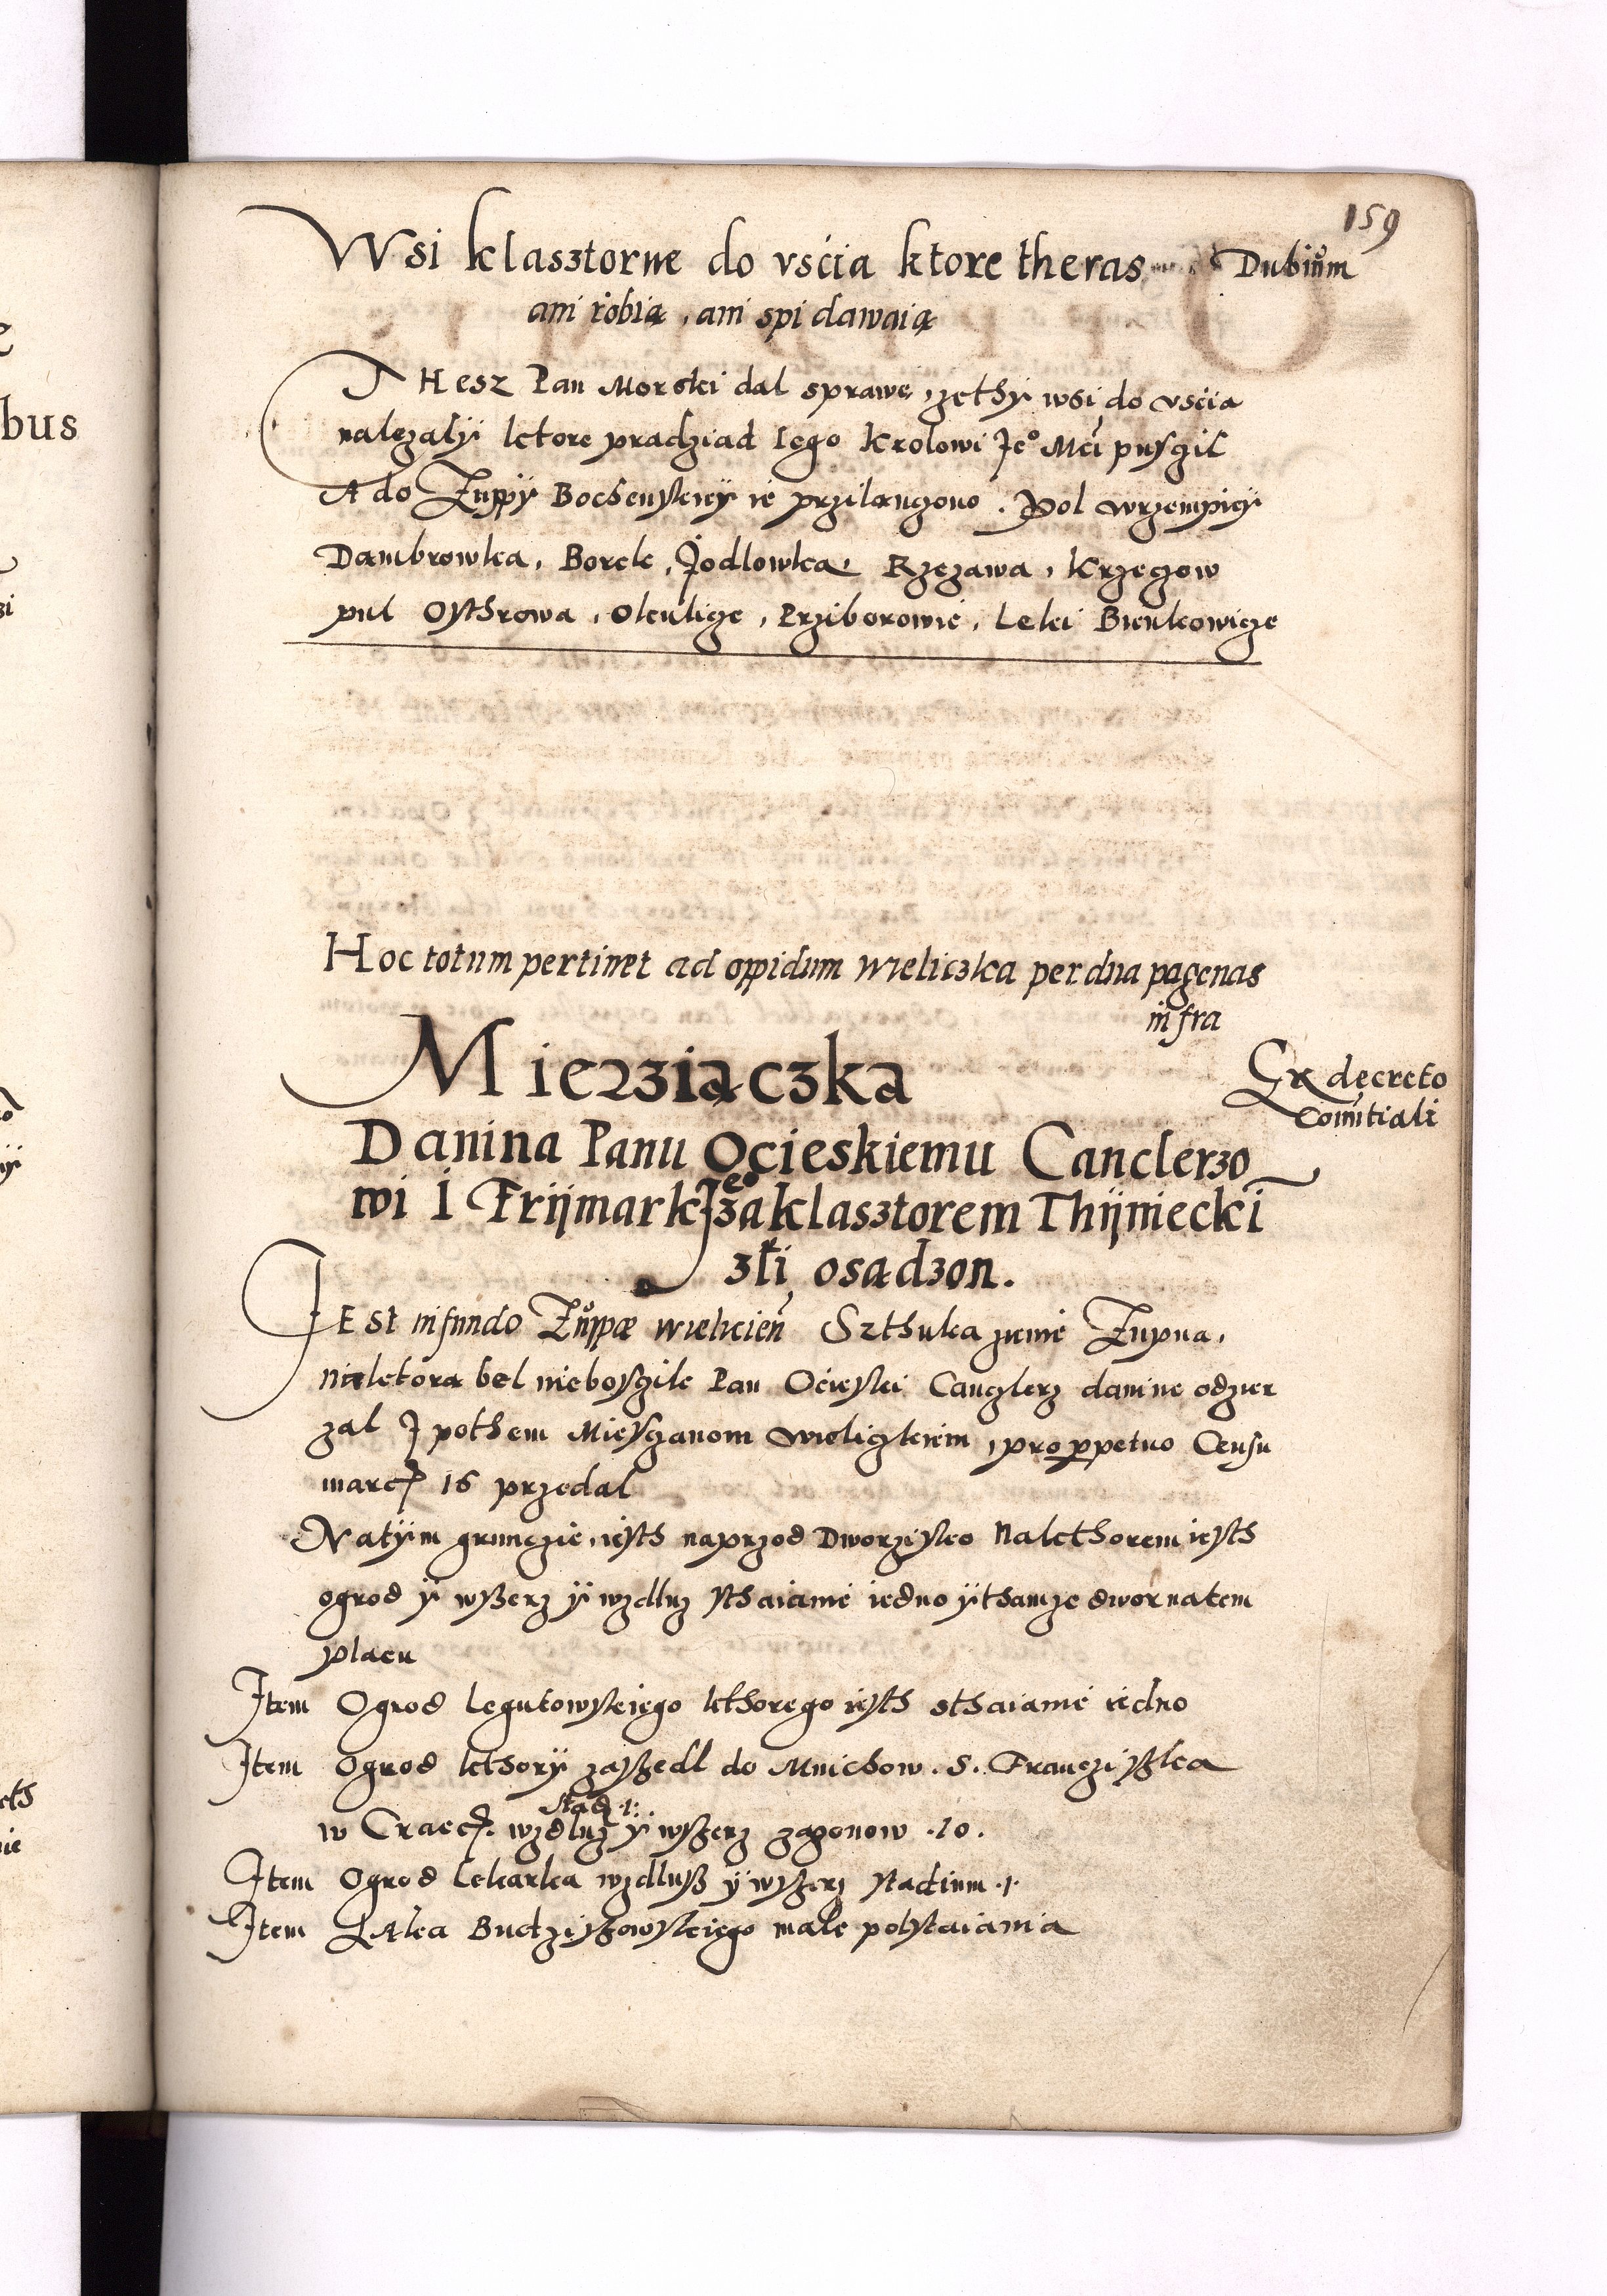 159
Wsi klasztorne do vsćia ktore theras Dubiům
ani robią, ani spi dawaią
THesz Pan Morski dal sprawę, zethÿ wsi do vsćia
nalęzalÿ ktore pradziad Iego Krolowi Je° Mći pusczil
A do Zuppÿ Bochenskieÿ ie przilanczono. Pol wrzempiczÿ
Dambrowka, Borek, Jodlowka, Rzezawa, Krzeczow
pul Osthrowa, Okulicze, Prziborowie, Leki Bienkowicze
Hoc totum pertinet ad oppidum Wieliczka per dua pagenas
infra
Mierziączka
Ex decreto
Comitiali
Danina Panu Ocieskiemu Canclerzo
wi I Frijmark Jeo zaklasztorem Thijnieckī
złi osadzon.
JEst in fundo Zůppæ wielicien̄ Szthuka ziemie Zupna,
niektora bel nieboszczik Pan Ocieski Canczlerz danine odzier
zal J pothem Miesczanom wieliczkiem, pro perpetuo Censu
marcę 16 przedal
Natÿm grunczie, iesth naprzod Dworzisko Nakthorem iesth
ogrod ÿ wsszerz ÿ wzdluz sthaianie iedno ÿ thamze dwor natem
placu
Item Ogrod Legutowskiego kthorego iesth sthaianie iedno
Item Ogrod kthorÿ zasszedl do Mnichow. S. Franczisska
w Crac. wzdluz stad. 1. ÿ wsszerz zagonow .10.
Item Ogrod Lekarka wzdluss ÿ wsszerz stadium .1.
Item Łąka Budziszowskiego małe polstaiania